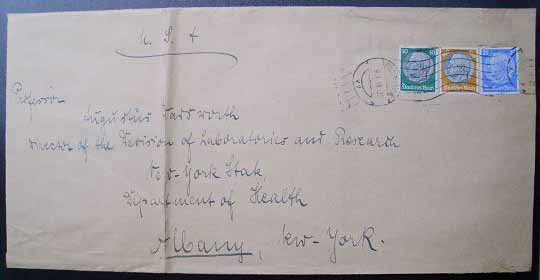 U. S. A
Professor
Augustus Wadsworth
Director of the Devision of Laboratories and Research
New-York State
Department of Health
Albany, New-York.
50
Deutsches Reich
Deutsches Reich